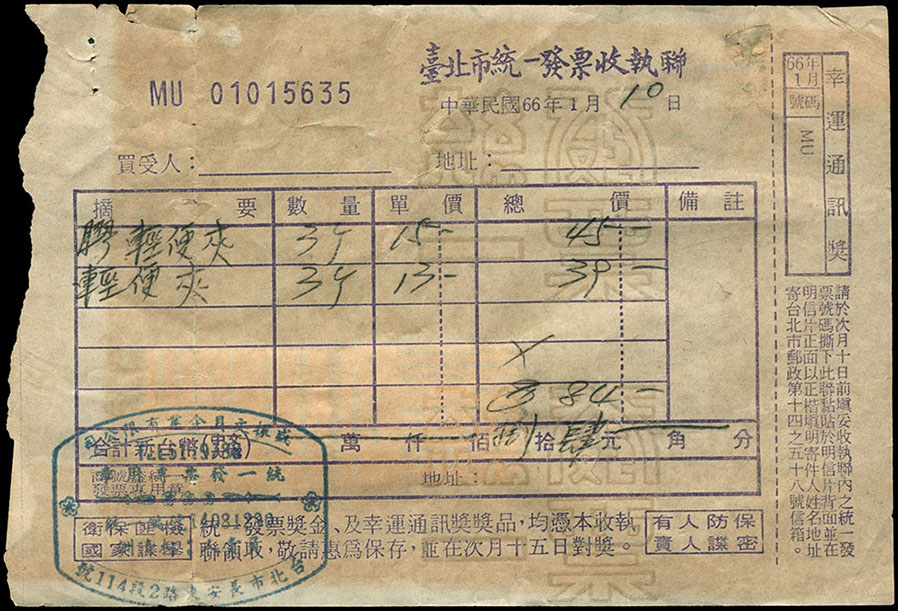 臺北市統一發票收執聯
MU 01015635
中華民國66年1月10日
買受人： 地址：
摘要 數量 單價 總價 備註
膠輕便夾 3 15- 45-
輕便夾 3 13- 39-
84-
合計新台幣(中文) 萬 仟 佰 捌 拾 肆 元 角 分
地址：
統一發票獎金、及幸運通訊獎獎品，均憑本收執
聯領取，敬請惠為保存，並在次月十五日對獎。
保密防諜
人人有責
檢舉匪諜
保衛國家
統一發票專用章
台北市長安東路2段114號
幸運通訊獎
66年1月
號碼
MU
請於次月十日前填妥收執聯內之統一發
票號碼撕下此聯黏貼於明信片背面並在
明信片正面以正楷填明寄件人姓名地址
寄台北市郵政第十四之五十八號信箱。